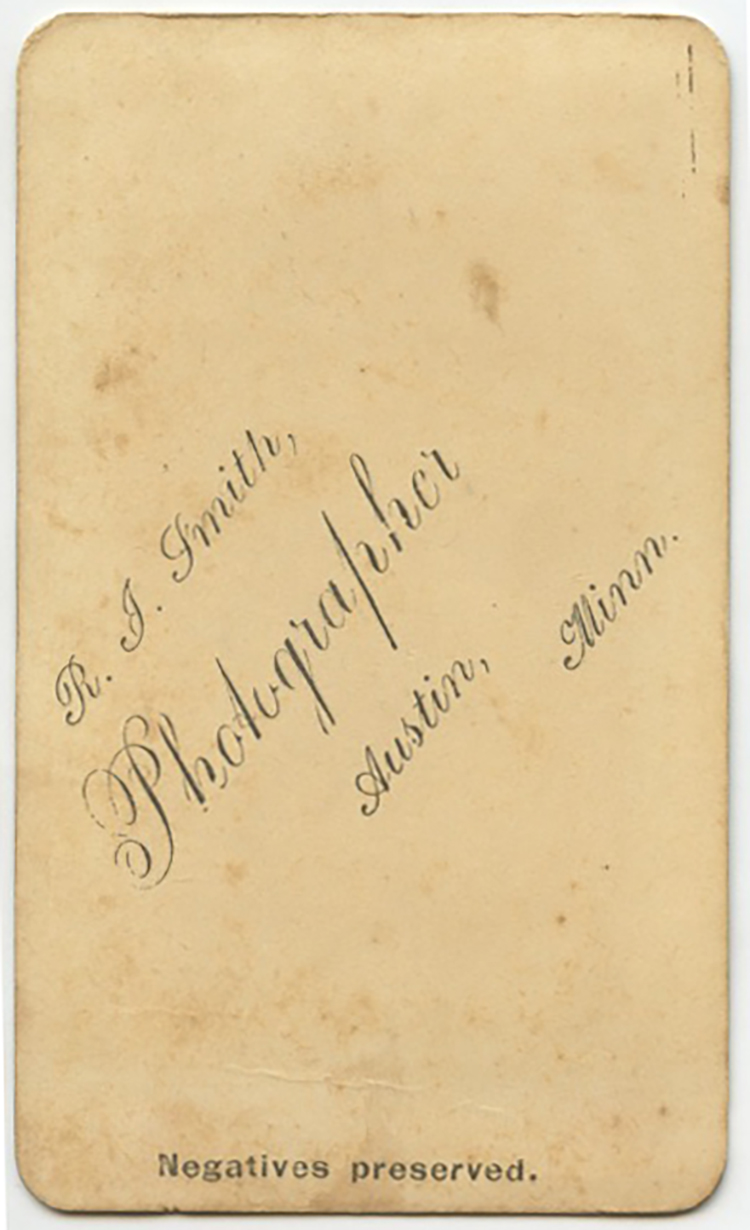 R. J. Smith,
Photographer
Austin, Minn.
Negatives preserved.